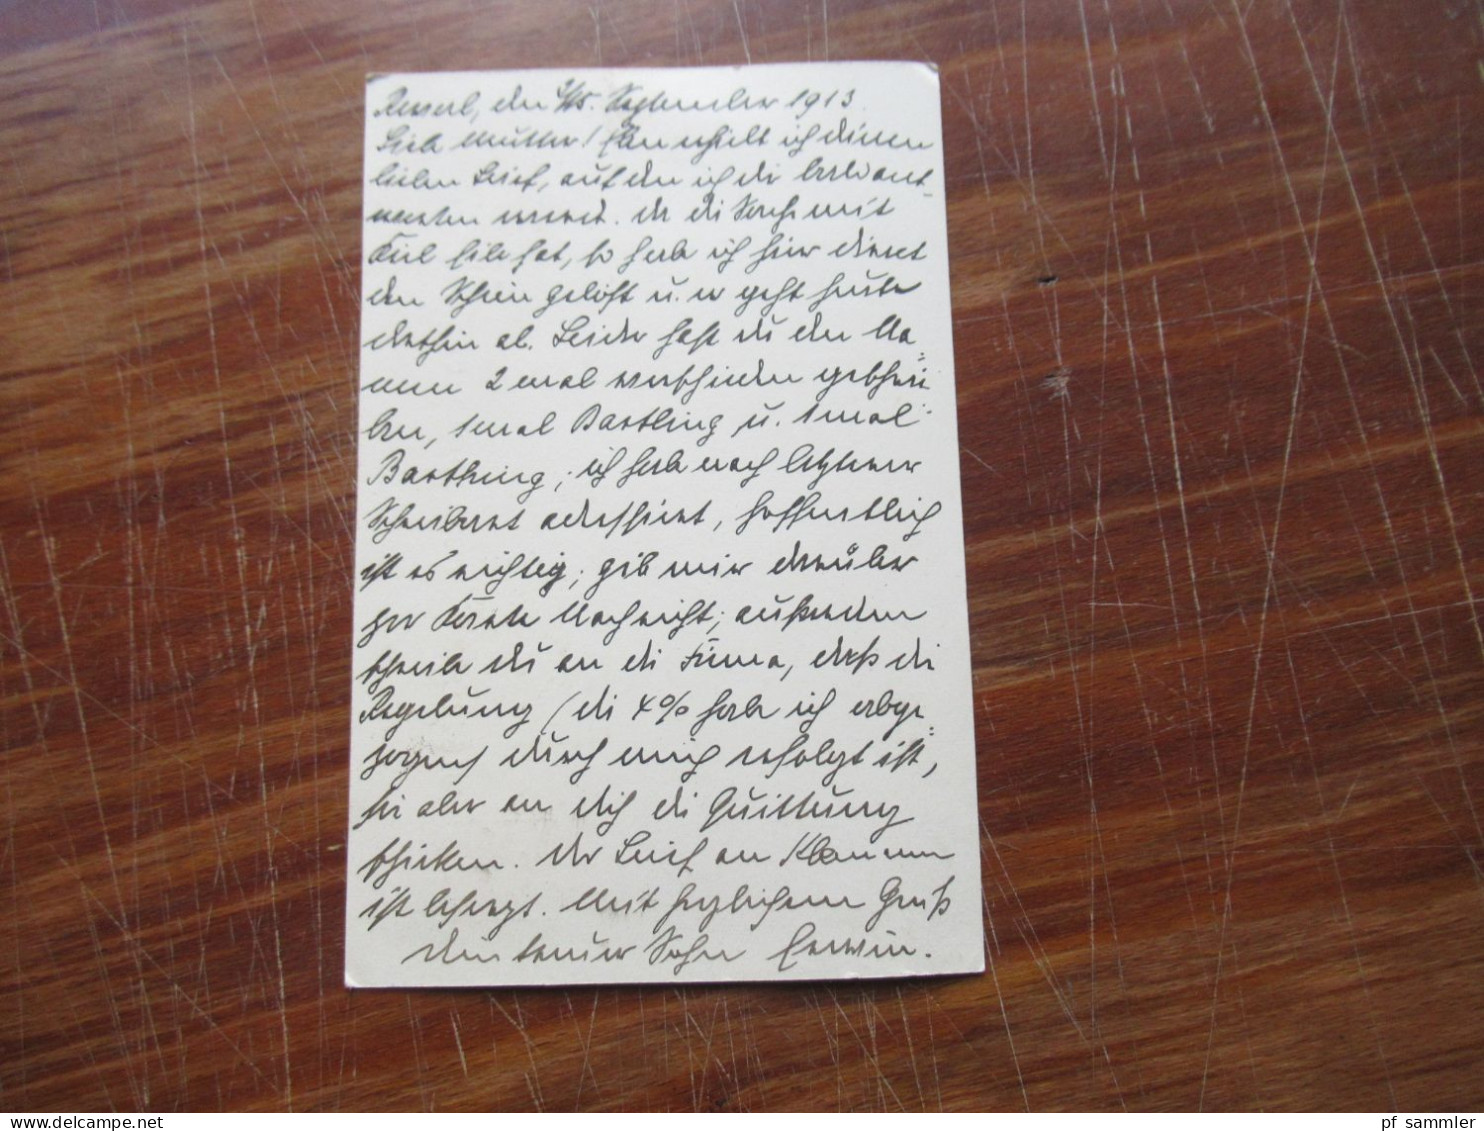 den 2/15. September 1913.
Liebe Mutter! Eben erhielt ich deinen
lieben Brief, auf den ich dir bald ant-
worten werde. Da die Sache mit
Kiel Eile hat, so habe ich hier direct
den Schein gelöst u. er geht heute
dorthin ab. Leider hast du den Na=
men 2 mal verschieden geschrie=
ben, 1 mal Bartling u. 1 mal
Barthing; ich habe nach letzterer
Schreibart adressiert, hoffentlich
ist es richtig; gib mir darüber
per Karte Nachricht; außerdem
schreibe du an die Firma, daß die
Regelung (die 4% habe ich abge=
zogen) durch mich erfolgt ist,
sie aber an dich die Quittung
schicken. Der Brief an Klamann
ist besorgt. Mit herzlichem Gruß
dein treuer Sohn Erwin.
pf sammler
delcampe.net